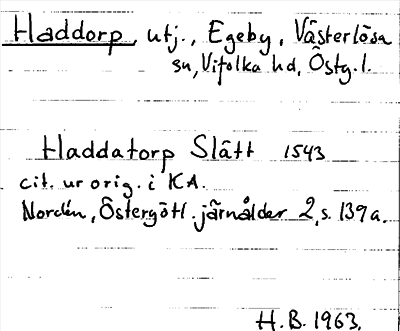 Haddorp, utj., Egeby, Västerlösa
sn, Vifolka hd, Östg. l.
Haddatorp Slätt 1543
cit. ur orig. i KA.
Nordén, Östergötl. järnålder 2, s. 139 a.
H. B. 1963.